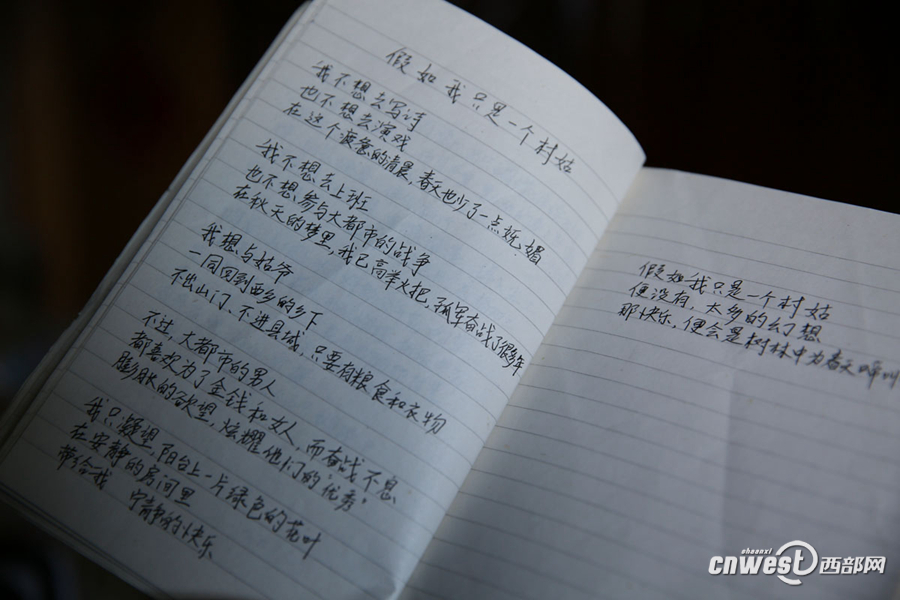 假如我只是一个村姑
我不想去写诗
也不想去演戏
在这个疲惫的清晨,春天也少了一点妩媚
我不想去上班
也不想参与大都市的战争
在秋天的梦里,我已高举火把,孤军奋战了很多年
我想与姑爷
一同回到西乡的乡下
不出山门、不进县城,只要有粮食和衣物
不过,大都市的男人
都喜欢为了金钱和女人,而奋战不息
膨胀的欲望,炫耀他们的,优秀
我只凝望,阳台上一片绿色的花叶
在安静的房间里
带给我 宁静的快乐
假如我只是一个村姑
便没有,太多的幻想
那快乐,便会是树林中为春天
shaanxi
cnwest西部网